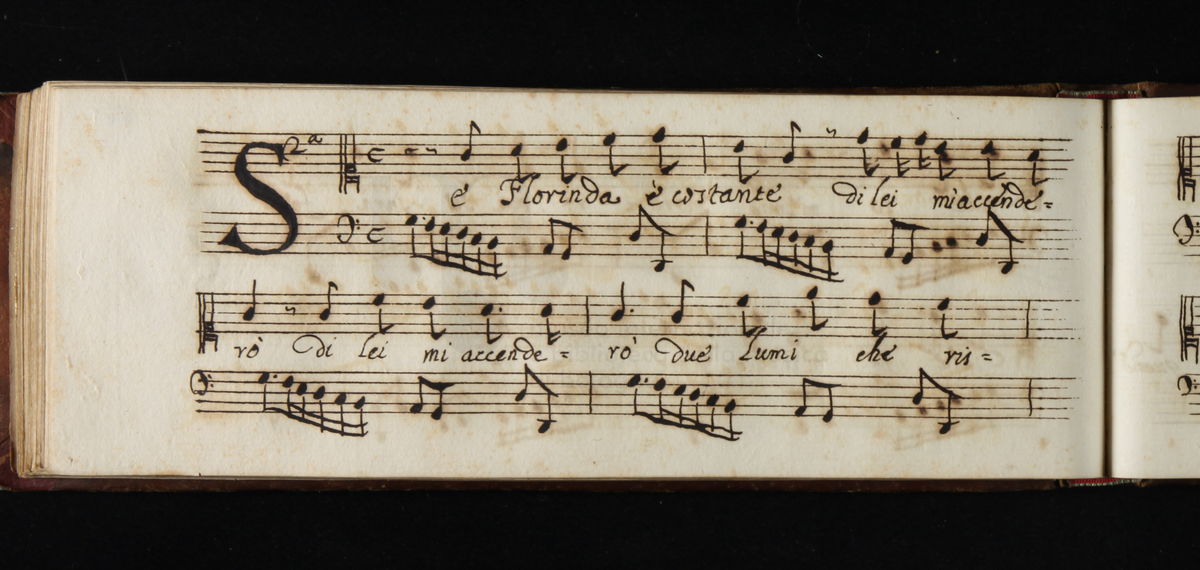 2ª
Se Florinda è costante di lei mi accende=
rò di lei mi accende= rò due lumi che ris=